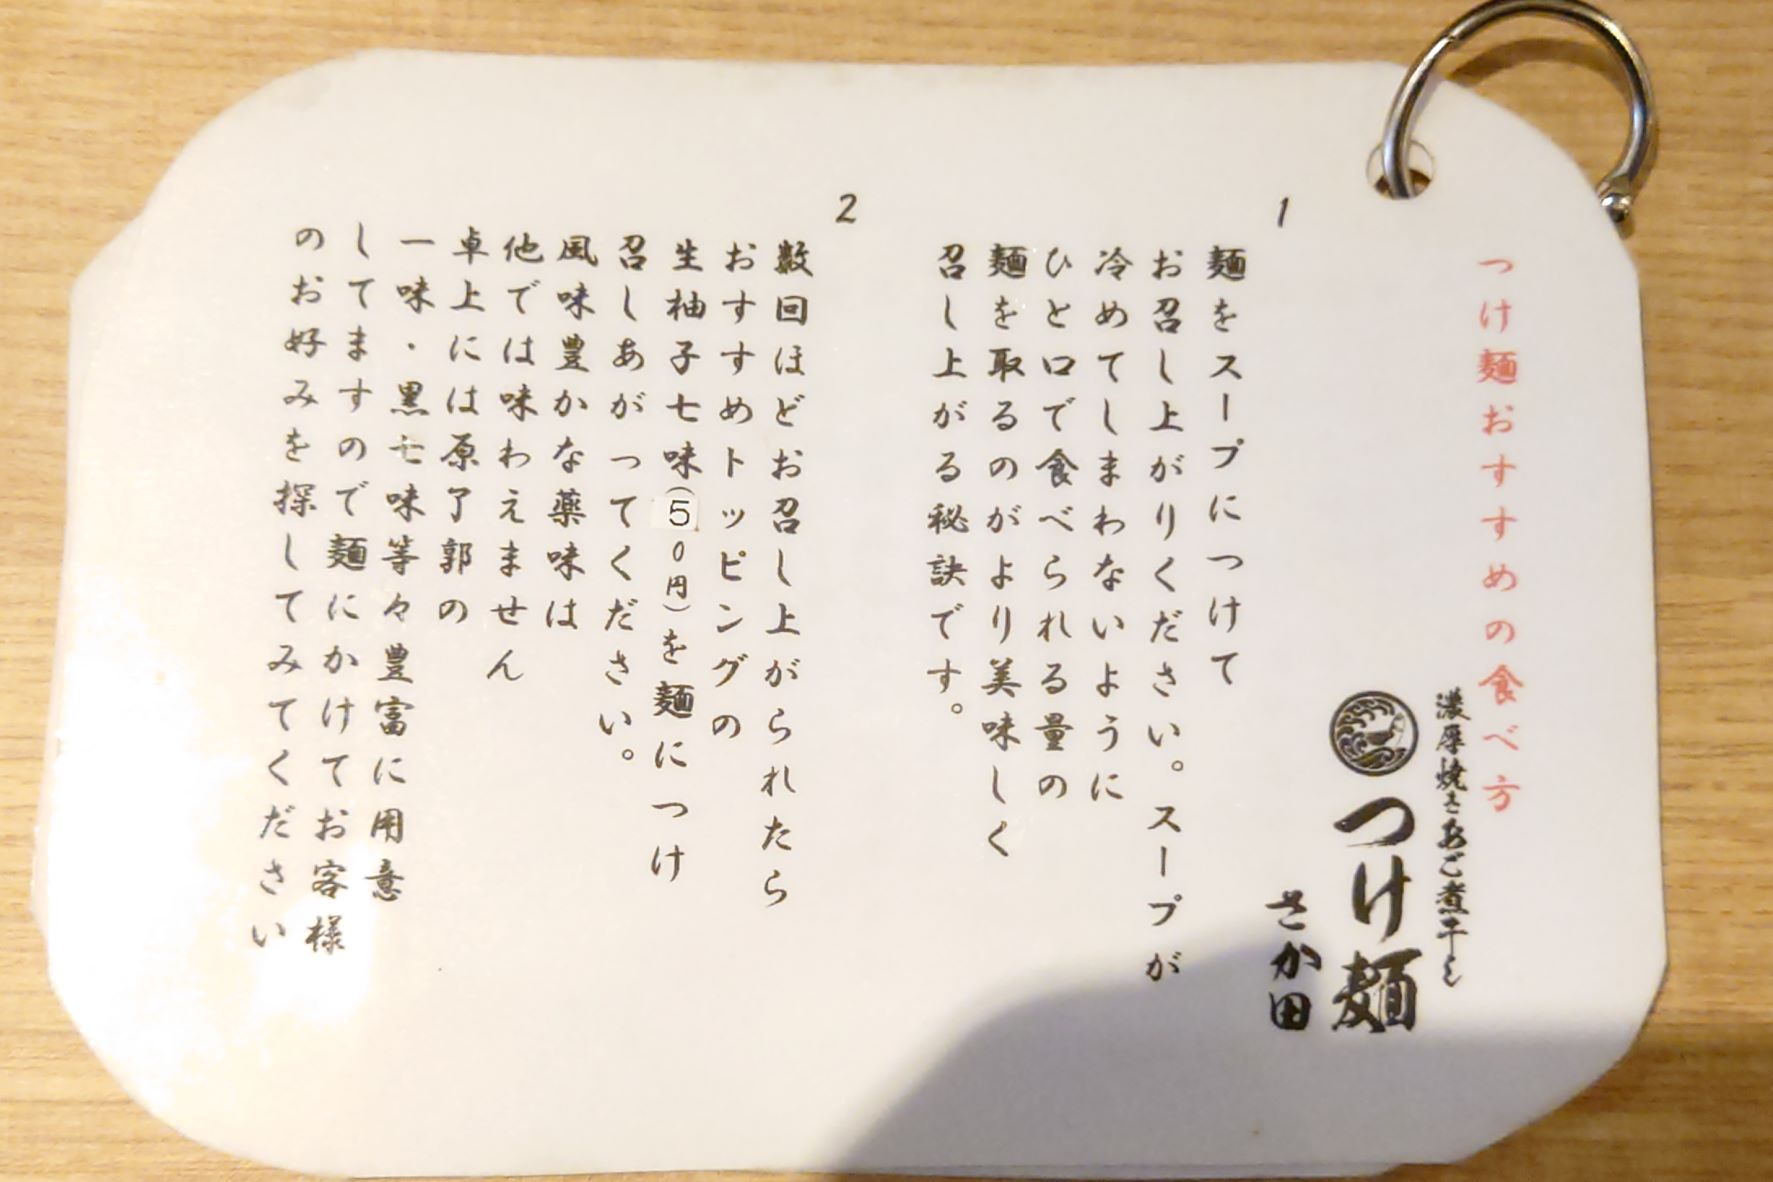 つけ麺おすすめの食べ方
濃厚焼きあご煮干し
つけ麺
さか田
1
麺をスープにつけて
お召し上がりください。スープが
冷めてしまわないように
ひと口で食べられる量の
麺を取るのがより美味しく
召し上がる秘訣です。
2
数回ほどお召し上がられたら
おすすめトッピングの
生柚子七味(50円)を麺につけ
召しあがってください。
風味豊かな薬味は
他では味わえません
卓上には原了郭の
一味・黒七味等々豊富に用意
してますので麺にかけてお客様
のお好みを探してみてください